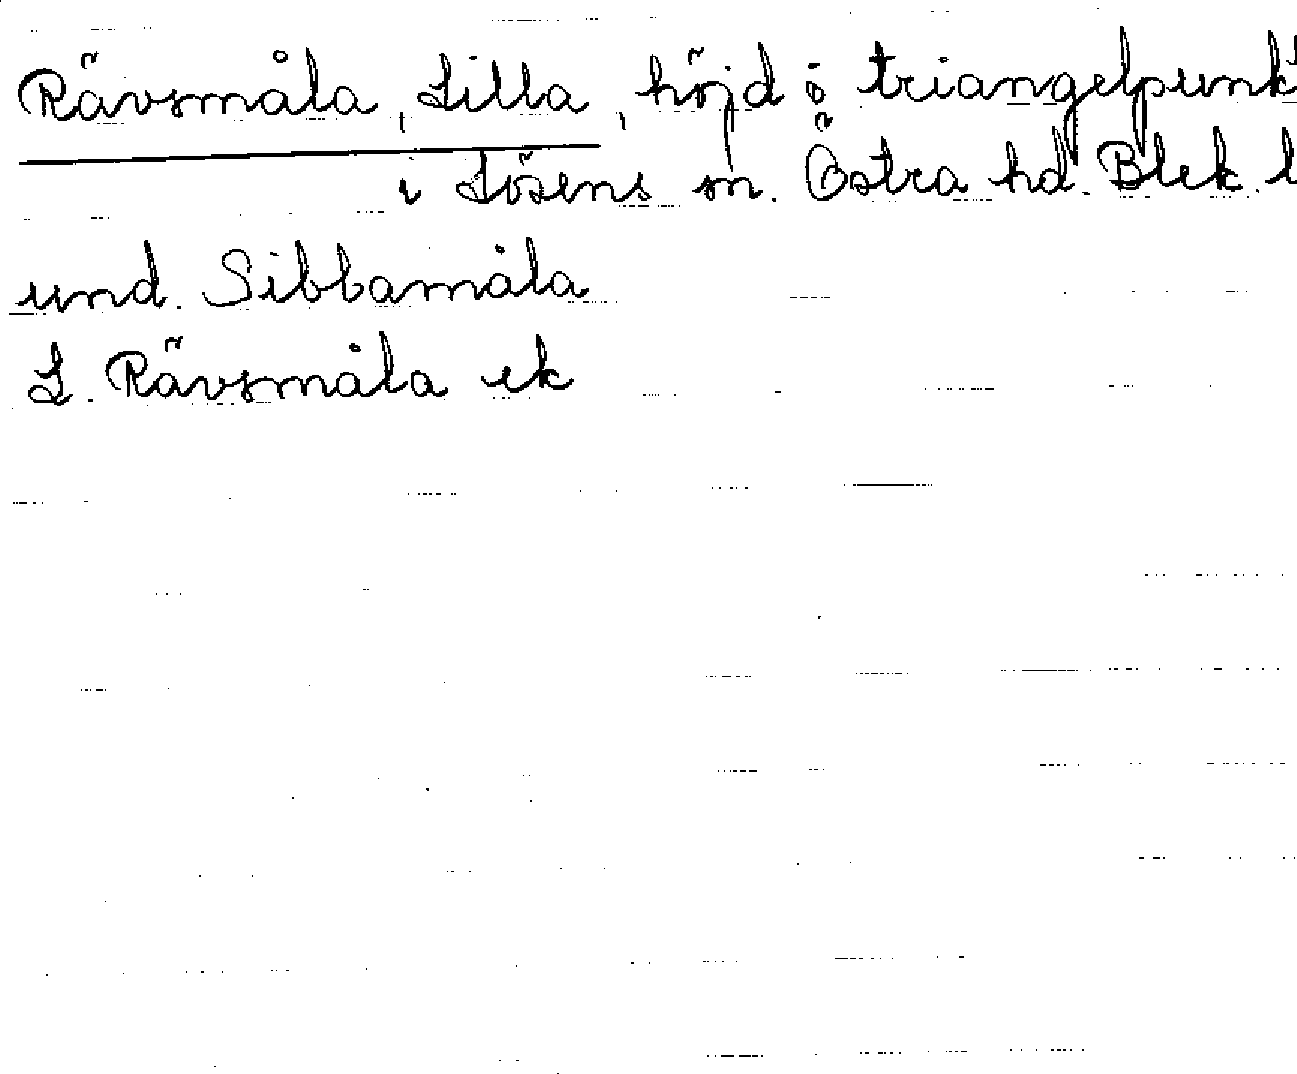 Rävsmåla, Lilla, höjd o triangelpunkt
i Lösens sn. Östra hd. Blek. l
und. Sibbamåla
L. Rävsmåla ek